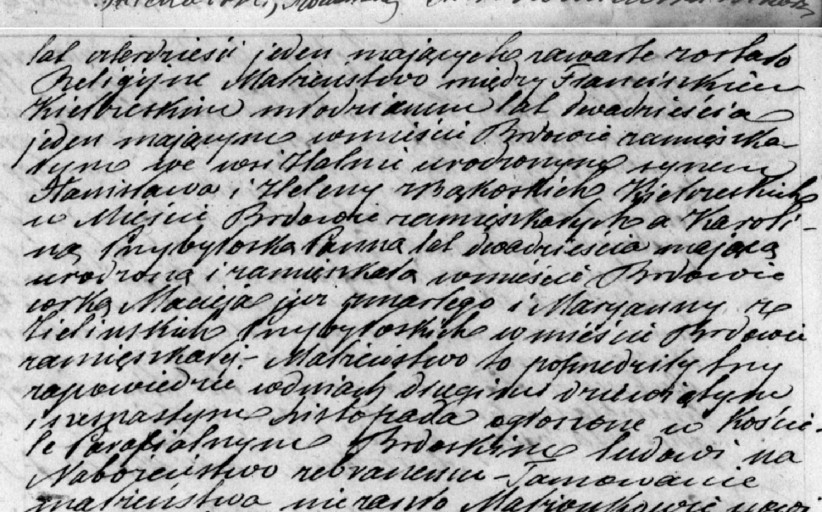 lat czterdzieści jeden mających zawarte zostało
Religijne Małżeństwo między Franciszkiem
młodzianem lat dwadzieścia
jeden mającym w mieście Brdowie zamieszka-
łym we wsi urodzonym synem
Stanisława i Heleny z Bąkoskich
w Mieście Brdowie zamieszkałych a Karoli-
ną Przybyłoską Panną lat dwadzieścia mającą
urodzoną i zamieszkałą w mieście Brdowie
córką Macieja już zmarłego i Maryanny z
Zielinskich Przybyłoskich w mieście Brdowie
zamieszkałej.- Małżeństwo to poprzedziły trzy
zapowiedzie w dniach drugim dziewiątym
i szesnastym Listopada ogłoszone w Koście-
le Parafialnym Brdoskim ludowi na
Nabożeństwo zebranemu - Tamowanie
małżeństwa nie zaszło Małżonkowie nowi